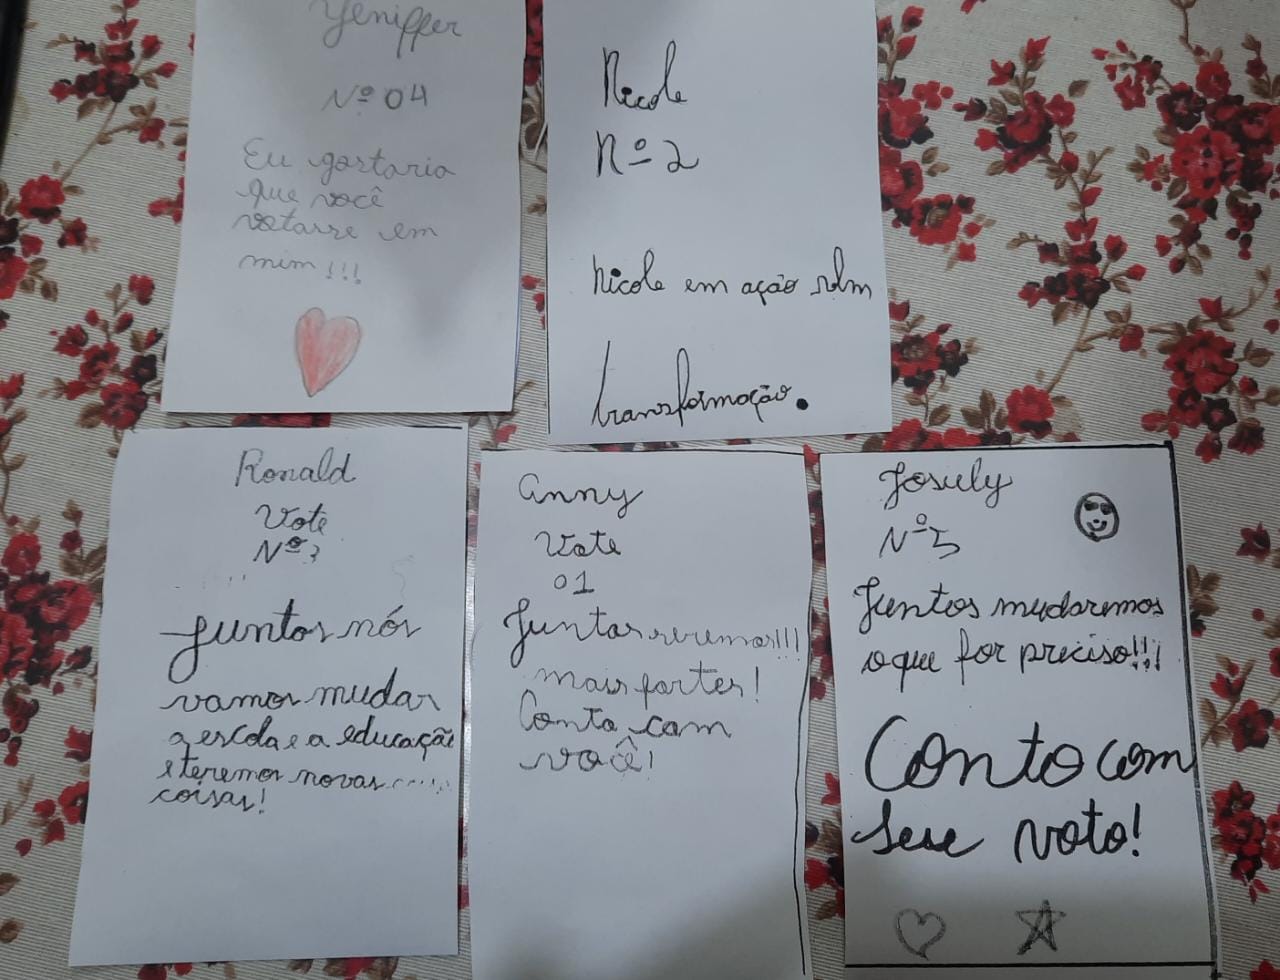 Yenipper
Nº 04
Eu gostaria
que você
votasse em
mim!!!
Nicole
Nº 2
Nicole em ação
transformação.
Ronald
Vote
Nº 3
Juntos nós
vamos mudar
a escola e a educação
e teremos novas
coisas!
Anny
Vote
01
Juntas seremos!!!
mais fortes!
Conto com
você!
Josuly
Nº 5
Juntos mudaremos
o que for preciso!!!
Conto com
seu voto!